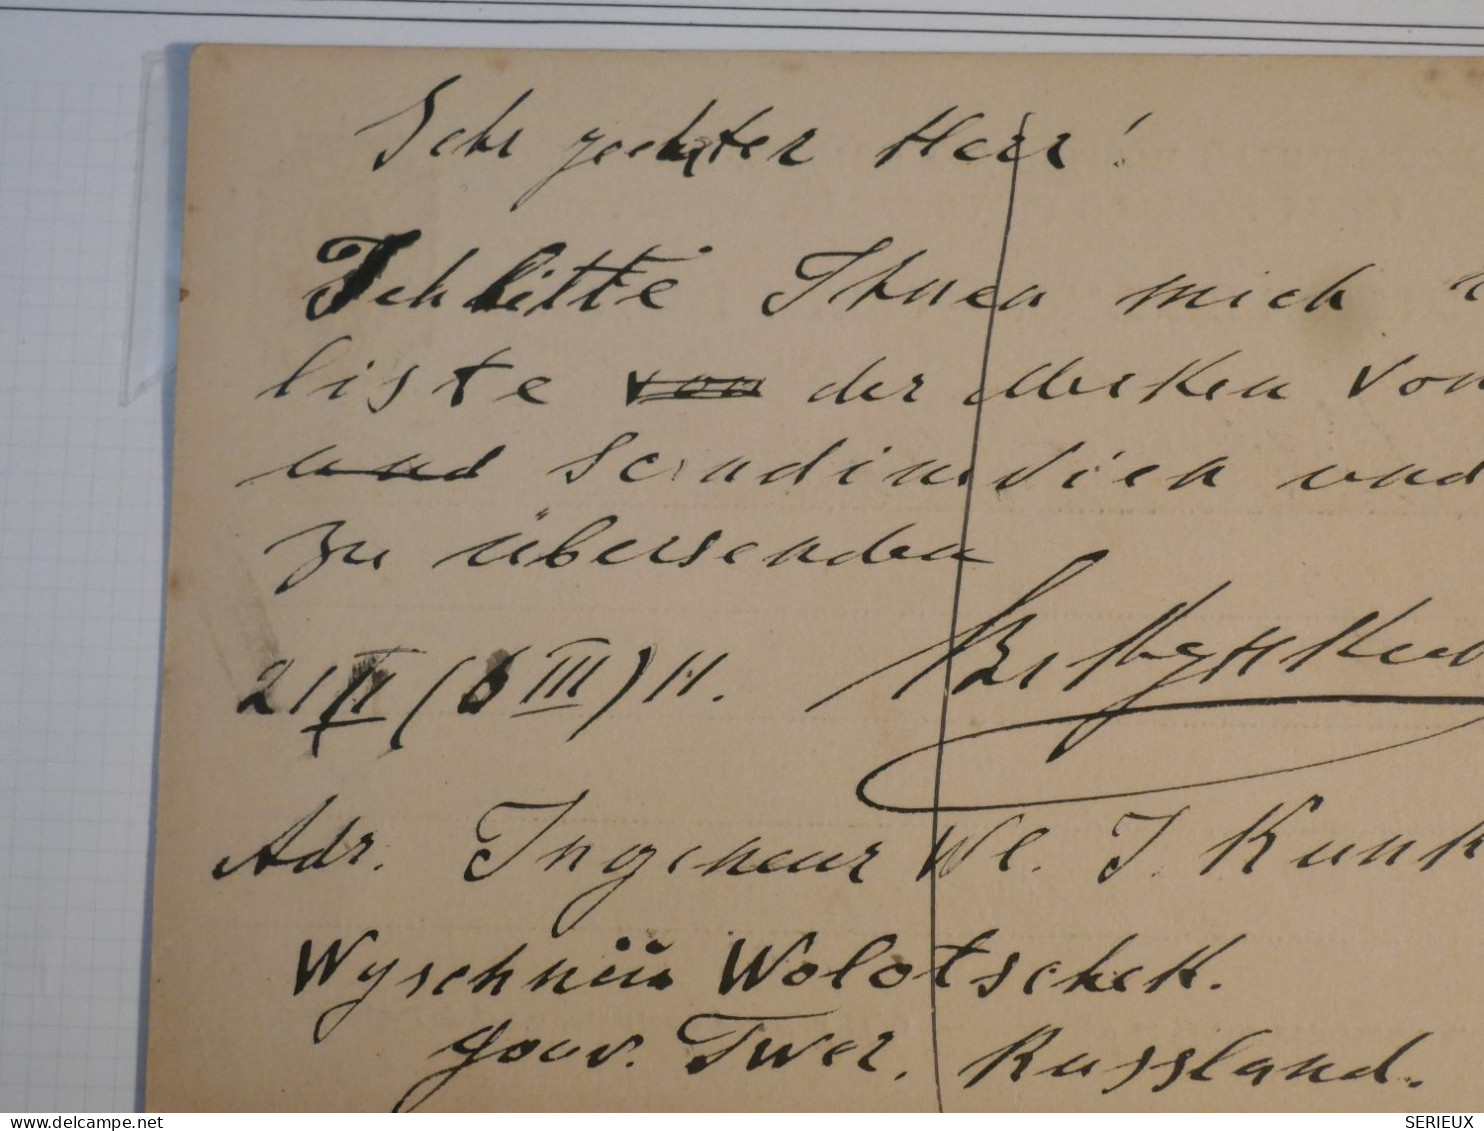 Sehr geehrter Herr!
Ich bitte Ihnen mich
liste von der Marken von
und Scandinavien und
zu übersenden
21 II (6 III) 11.
Adr. Ingeneur Wl. J. Kunk
Wyschnii Wolotschek.
Gouv. Twer, Russland.
SERIEUX